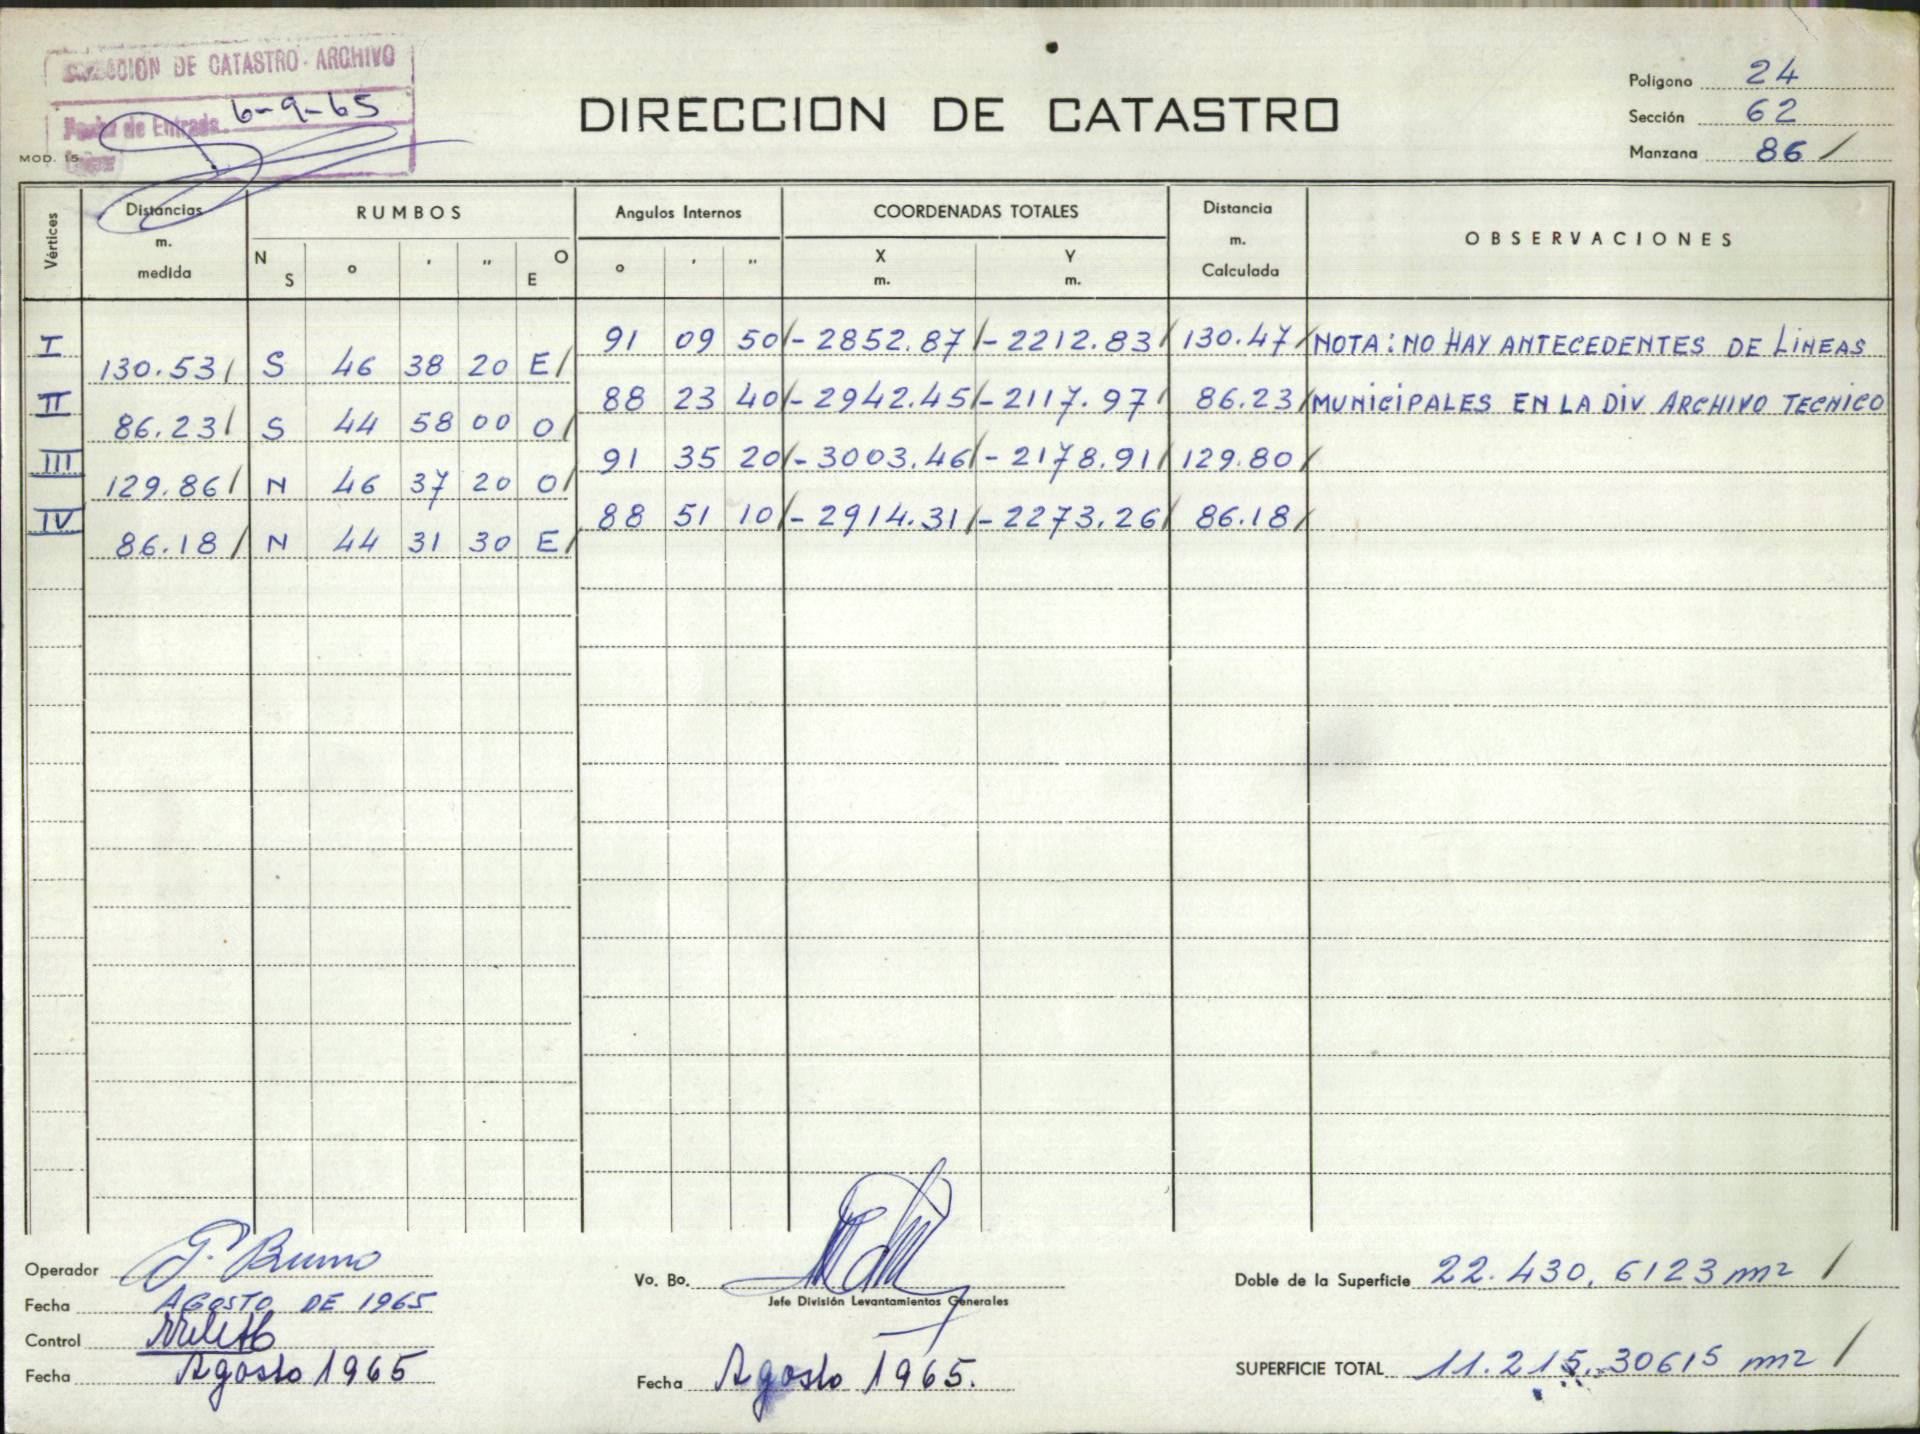 DIRECCION DE CATASTRO - ARCHIVO
Fecha de Entrada 6-9-65
MOD. 15
DIRECCION DE CATASTRO
Polígono 24
Sección 62
Manzana 86 /
Vértices
Distancias m. medida
RUMBOS
N S ° ' " O E
Angulos Internos
° ' "
COORDENADAS TOTALES
X m. Y m.
Distancia m. Calculada
OBSERVACIONES
I 91 09 50/ -2852.87/ -2212.83/ 130.47/ NOTA: NO HAY ANTECEDENTES DE LINEAS
130.53/ S 46 38 20 E/
II 88 23 40/ -2942.45/ -2117.97/ 86.23/ MUNICIPALES EN LA DIV ARCHIVO TECNICO
86.23/ S 44 58 00 O/
III 91 35 20/ -3003.46/ -2178.91/ 129.80/
129.86/ N 46 37 20 O/
IV 88 51 10/ -2914.31/ -2273.26/ 86.18/
86.18/ N 44 31 30 E/
Operador P. Bruno
Fecha AGOSTO DE 1965
Control
Fecha Agosto 1965
Vo. Bo.
Jefe División Levantamientos Generales
Fecha Agosto 1965.
Doble de la Superficie 22.430,6123 m2 /
SUPERFICIE TOTAL 11.215.30615 m2 /